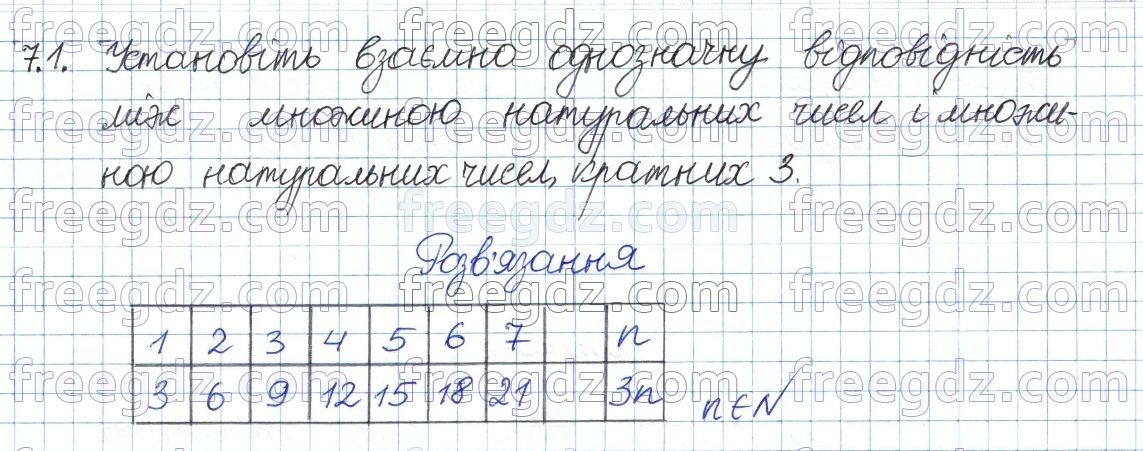 7.1. Установіть взаємно однозначну відповідність
між множиною натуральних чисел і множи-
ною натуральних чисел, кратних 3.
Розв'язання
1 2 3 4 5 6 7 n
3 6 9 12 15 18 21 3n n∈N
freegdz.com